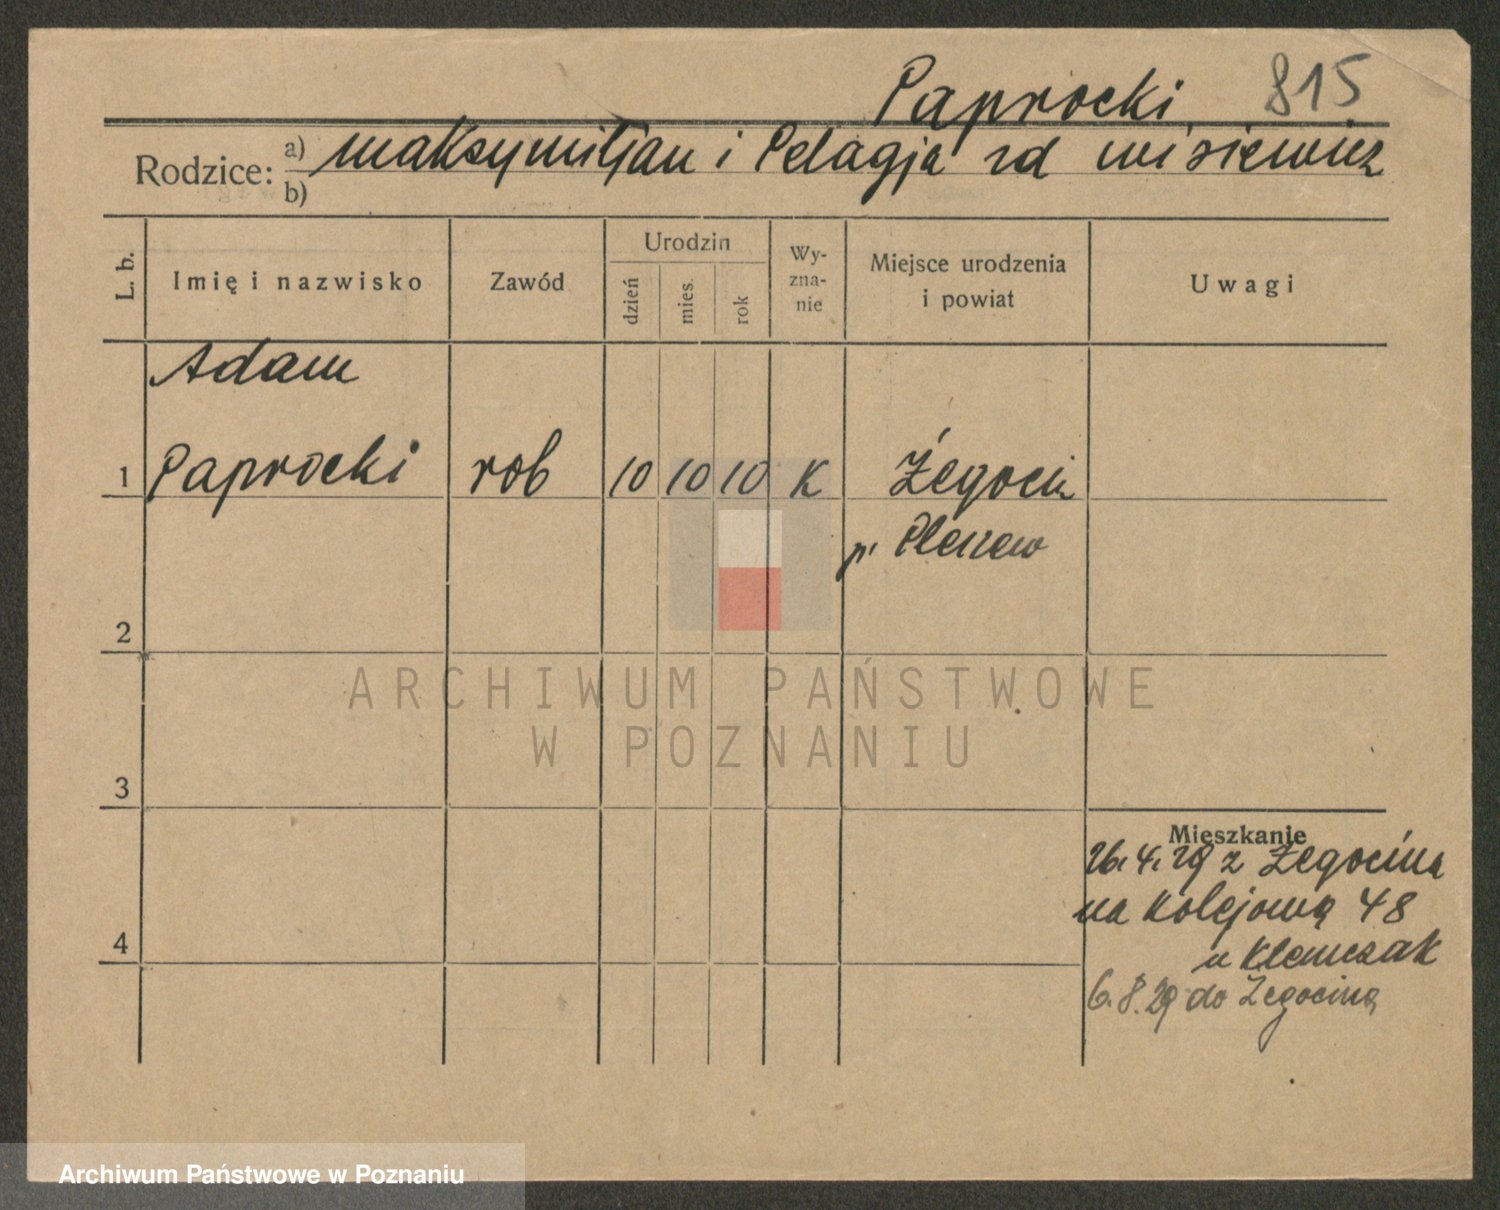 Paprocki 815
Rodzice: a) Maksymiljan i Pelagja zd Wisiewicz
b)
L. b.
Imię i nazwisko
Zawód
Urodzin
dzień
mies.
rok
Wy-
zna-
nie
Miejsce urodzenia
i powiat
Uwagi
Adam
1 Paprocki rob 10 10 10 K Żegocin
p. Pleszew
2
ARCHIWUM PAŃSTWOWE
W POZNANIU
3
Mieszkanie
26.4.29 z Żegocina
na Kolejową 48
4
u Klemczak
6.8.29 do Żegocina
Archiwum Państwowe w Poznaniu